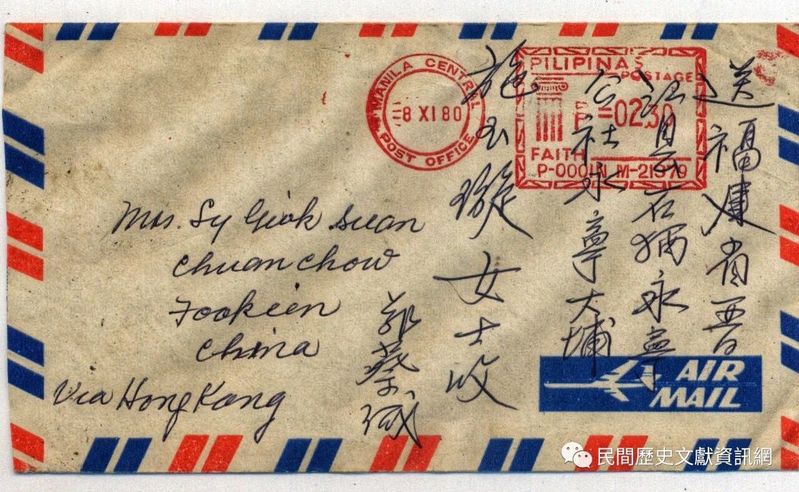 MANILA CENTRAL
8 XI 80
POST OFFICE
PILIPINAS
POSTAGE
=02.30
FAITH
M-21979
送福建省晋
江县石狮永寧
公社永寧大埔
施玉璇女士收
郭蔡
Mrs. Sy Giok Suan
Chuan Chow
Fookien
China
Via Hong Kong
AIR
MAIL
民間歷史文獻資訊網